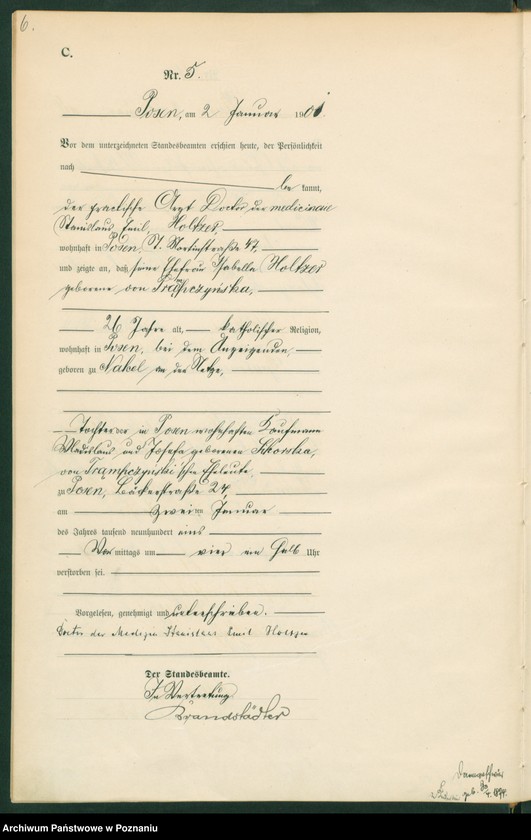 6.
C.
Nr. 5.
Posen, am 2 Januar 1901.
Vor dem unterzeichneten Standesbeamten erschien heute, der Persönlichkeit
nach
be kannt,
der practische Arzt Doctor der medicin
Stanislaus Emil, Holtzer
wohnhaft in Posen St. Martinstraße 47,
und zeigte an, daß seine Ehefrau Isabella Holtzer
geborene von Trąmpczyńska,
26 Jahre alt, katholischer Religion,
wohnhaft in Posen, bei dem Anzeigenden,
geboren zu Nakel an der Netze,
Tochter der in Posen wohnhaften Kaufmann
Wladislaus und Josefa geborenen Sikorska,
von Trąmpczyński'schen Eheleute
zu Posen, Bäckerstraße 24,
am zweiten Januar
des Jahres tausend neunhundert eins
Vor mittags um vier ein halb Uhr
verstorben sei.
Vorgelesen, genehmigt und unterschrieben.
Doctor der Medizin Stanislaus Emil Holtzer
Der Standesbeamte.
In Vertretung
Brandstädter
geb. 4. 1874.
Archiwum Państwowe w Poznaniu